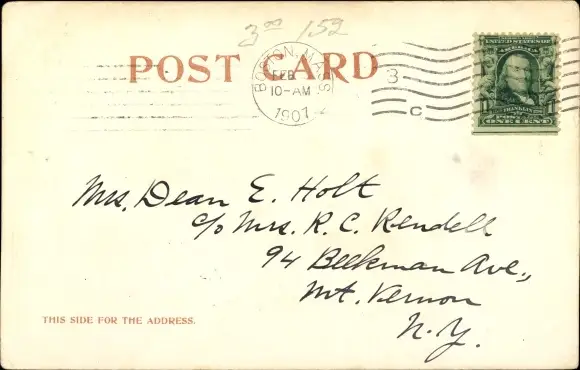 3⁰⁰ 152
POST CARD
BOSTON, MASS
FEB
10-AM
1907
3
C
FRANKLIN
ONE CENT
Mrs. Dean E. Holt
c/o Mrs. R. C. Rendell
94 Beekman Ave.,
Mt. Vernon
N.Y.
THIS SIDE FOR THE ADDRESS.